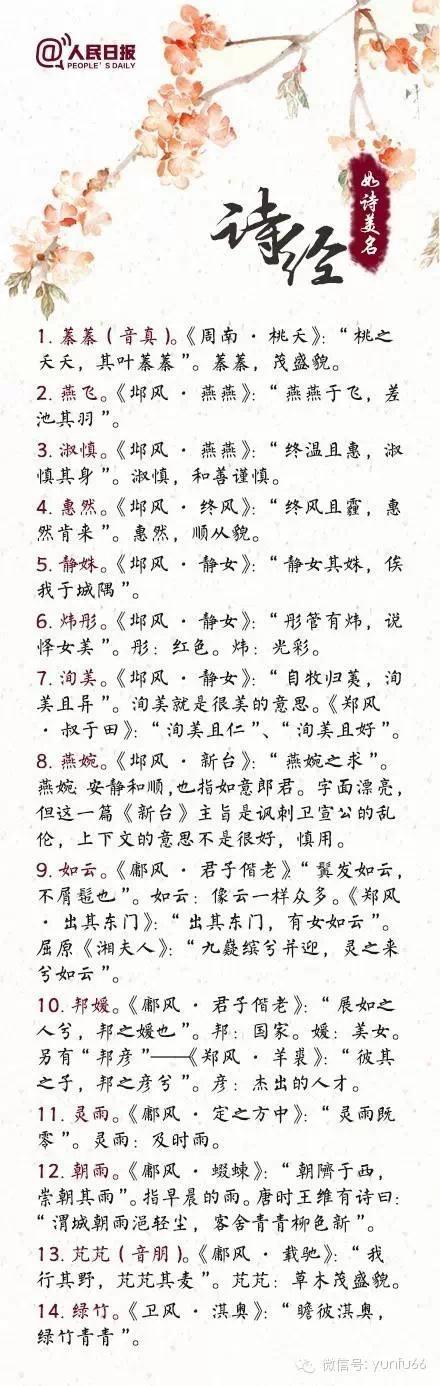 @人民日报
PEOPLE'S DAILY
如诗美名
诗经
1. 蓁蓁（音真）。《周南·桃夭》：“桃之
夭夭，其叶蓁蓁”。蓁蓁，茂盛貌。
2. 燕飞。《邶风·燕燕》：“燕燕于飞，差
池其羽”。
3. 淑慎。《邶风·燕燕》：“终温且惠，淑
慎其身”。淑慎，和善谨慎。
4. 惠然。《邶风·终风》：“终风且霾，惠
然肯来”。惠然，顺从貌。
5. 静姝。《邶风·静女》：“静女其姝，俟
我于城隅”。
6. 炜彤。《邶风·静女》：“彤管有炜，说
怿女美”。彤：红色。炜：光彩。
7. 洵美。《邶风·静女》：“自牧归荑，洵
美且异”。洵美就是很美的意思。《郑风
·叔于田》：“洵美且仁”、“洵美且好”。
8. 燕婉。《邶风·新台》：“燕婉之求”。
燕婉：安静和顺，也指如意郎君。字面漂亮，
但这一篇《新台》主旨是讽刺卫宣公的乱
伦，上下文的意思不是很好，慎用。
9. 如云。《鄘风·君子偕老》：“鬒发如云，
不屑髢也”。如云：像云一样众多。《郑风
·出其东门》：“出其东门，有女如云”。
屈原《湘夫人》：“九嶷缤兮并迎，灵之来
兮如云”。
10. 邦媛。《鄘风·君子偕老》：“展如之
人兮，邦之媛也”。邦：国家。媛：美女。
另有“邦彦”——《郑风·羊裘》：“彼其
之子，邦之彦兮”。彦：杰出的人才。
11. 灵雨。《鄘风·定之方中》：“灵雨既
零”。灵雨：及时雨。
12. 朝雨。《鄘风·蝃蝀》：“朝隮于西，
崇朝其雨”。指早晨的雨。唐时王维有诗曰：
“渭城朝雨浥轻尘，客舍青青柳色新”。
13. 芃芃（音朋）。《鄘风·载驰》：“我
行其野，芃芃其麦”。芃芃：草木茂盛貌。
14. 绿竹。《卫风·淇奥》：“瞻彼淇奥，
绿竹青青”。
微信号: yunfu66